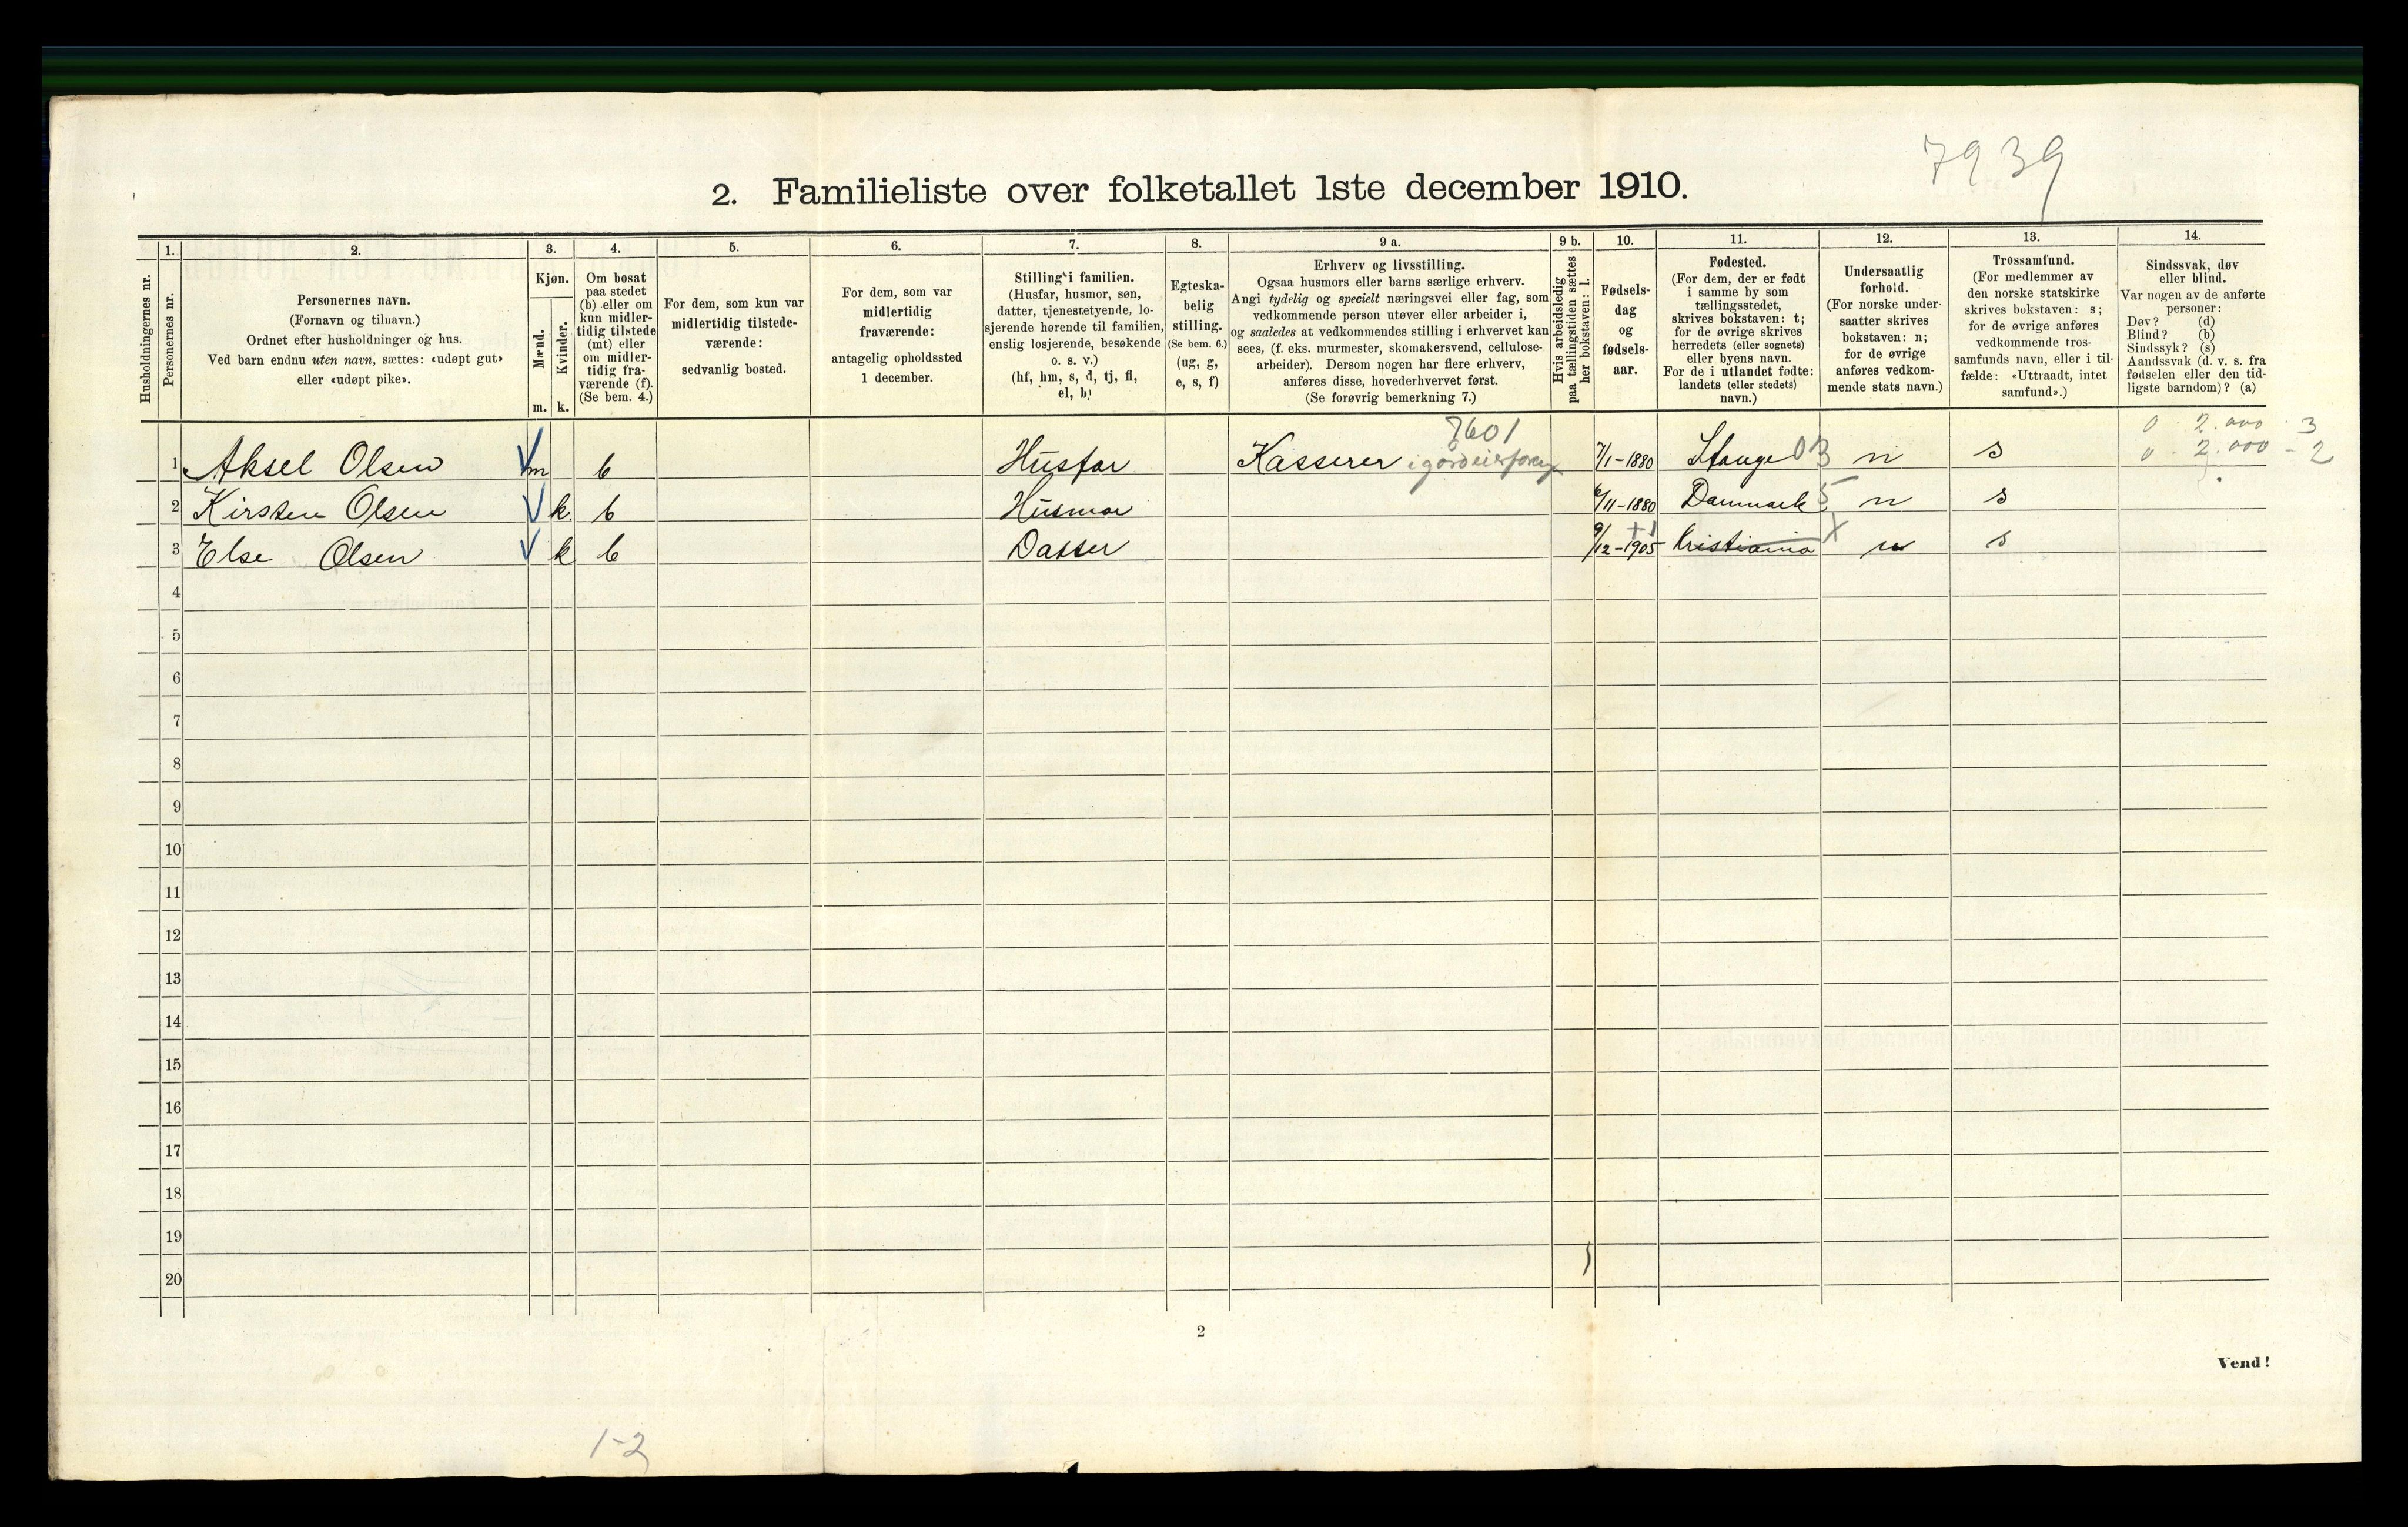 7939
2. Familieliste over folketallet 1ste december 1910.
Husholdningernes nr.
1.
Personernes nr.
2.
Personernes navn.
(Fornavn og tilnavn.)
Ordnet efter husholdninger og hus.
Ved barn endnu uten navn, sættes: «udøpt gut»
eller «udøpt pike».
3.
Kjøn.
Mænd.
Kvinder.
m. k.
4.
Om bosat
paa stedet
(b) eller om
kun midler-
tidig tilstede
(mt) eller
om midler-
tidig fra-
værende (f).
(Se bem. 4.)
5.
For dem, som kun var
midlertidig tilstede-
værende:
sedvanlig bosted.
6.
For dem, som var
midlertidig
fraværende:
antagelig opholdssted
1 december.
7.
Stilling i familien.
(Husfar, husmor, søn,
datter, tjenestetyende, lo-
sjerende hørende til familien,
enslig losjerende, besøkende
o. s. v.)
(hf, hm, s, d, tj, fl,
el, b)
8.
Egteska-
belig
stilling.
(Se bem. 6.)
(ug, g,
e, s, f)
9 a.
Erhverv og livsstilling.
Ogsaa husmors eller barns særlige erhverv.
Angi tydelig og specielt næringsvei eller fag, som
vedkommende person utøver eller arbeider i,
og saaledes at vedkommendes stilling i erhvervet kan
sees, (f. eks. murmester, skomakersvend, cellulose-
arbeider). Dersom nogen har flere erhverv,
anføres disse, hovederhvervet først.
(Se forøvrig bemerkning 7.)
9 b.
Hvis arbeidsledig
paa tællingstiden sættes
her bokstaven: l.
10.
Fødsels-
dag
og
fødsels-
aar.
11.
Fødested.
(For dem, der er født
i samme by som
tællingsstedet,
skrives bokstaven: t;
for de øvrige skrives
herredets (eller sognets)
eller byens navn.
For de i utlandet fødte:
landets (eller stedets)
navn.)
12.
Undersaatlig
forhold.
(For norske under-
saatter skrives
bokstaven: n;
for de øvrige
anføres vedkom-
mende stats navn.)
13.
Trossamfund.
(For medlemmer av
den norske statskirke
skrives bokstaven: s;
for de øvrige anføres
vedkommende tros-
samfunds navn, eller i til-
fælde: «Uttraadt, intet
samfund».)
14.
Sindssvak, døv
eller blind.
Var nogen av de anførte
personer:
Døv? (d)
Blind? (b)
Sindssyk? (s)
Aandssvak (d. v. s. fra
fødselen eller den tid-
ligste barndom)? (a)
8601
0 2.000 - 3
0 2.000 - 2
1 Aksel Olsen m b Husfar Kasserer 7/1-1880 Stange 03 n s
2 Kirsten Olsen k. b Husmor 6/11-1880 Danmark 5 n s
+1 X
3 Else Olsen k b Datter 9/12-1905 Kristiania n s
4
5
6
7
8
9
10
11
12
13
14
15
16
17
18
19
20
2
Vend!
1-2